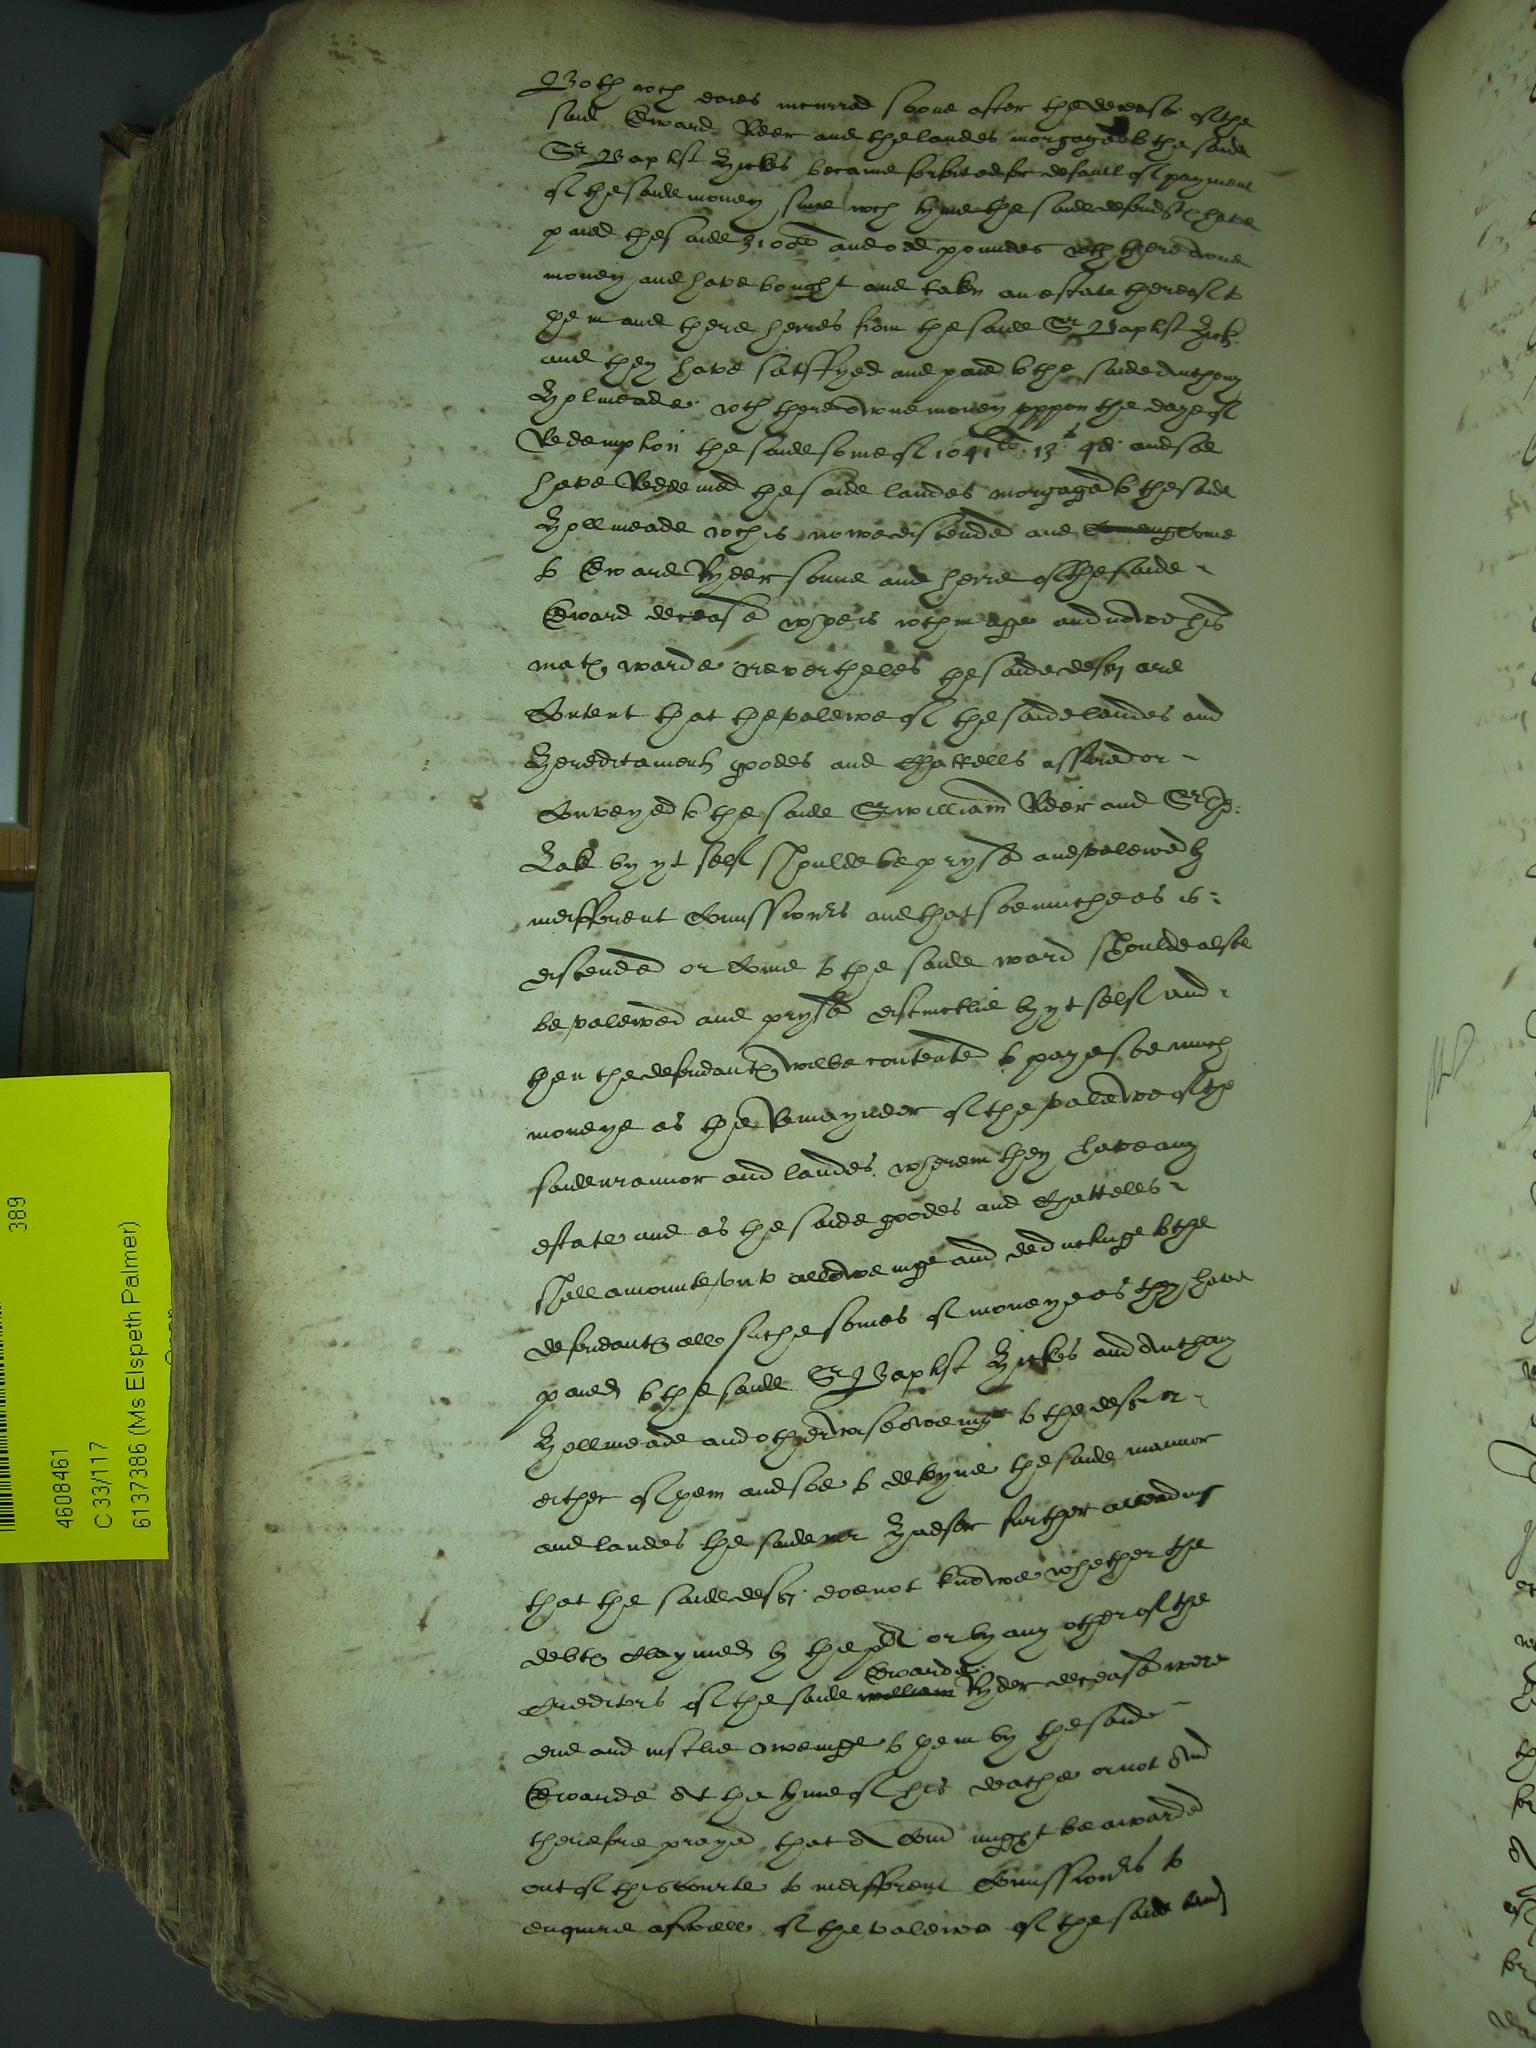 Both wch daies incurred soone after the decease of the
said Edward Rder and the landes morgaged to the saide
Sr Baptist Hickes became forfited for default of payment
of the saide money since wch tyme the saide defendts have
paied the saide 3100li and odd poundes wth there owne
money and have bought and taken an estate thereof to
them and there heires from the saide Sr Baptist Hick
and they have satisfyed and paied to the saide Anthony
Holmeade wth there owne money uppon the daye of
Redemption the saide some of 1041li 13s 4d and soe
have Redeemed the saide landes morgaged to the saide
Hollmeade wch is nowe discended and come
to Edward Ryder sonne and heire of the saide
Edward deceased who is wthin age and nowe his
mats warde nevertheles the saide defts are
Content that the valewe of the saide landes and
Hereditaments goodes and Chattells assured or
Conveyed to the saide Sr william Rder and Sr Tho:
Lake by yt self shoulde be prysed and valewed by
indifferent Comissioners and that soe muche as is
discended or Come to the saide ward shoulde alsoe
be valewed and prysed distinctlie by yt self and
then the defendants wilbe contented to paye soe much
moneye as the Remaynder of the valewe of the
saide mannor and landes wherein they have any
estate and as the saide goodes and Chattells
shall amounte unto allowinge and deductinge to the
defendants all suche somes of moneye as they have
paied to the saide Sr Baptist Hickes and Anthony
Hollmeade and otherwise oweing to the defts or
either of them and soe to deteyne the saide mannor
and landes the saide mr Hadsor further alleadging
that the saide defts doe not knowe whether the
debts Claymed by the pl or by any other of the
Creditors of the saide william Edwarde Ryder deceased were
due and iustlie oweinge to them by the saide
Edwarde at the tyme of his deathe or not And
therefore prayed that a Com might be awarded
out of this Courte to indifferent Comissioners to
enquire aswell of the valewe of the saide lands
389
4608461
C 33/117
6137386 (Ms Elspeth Palmer)